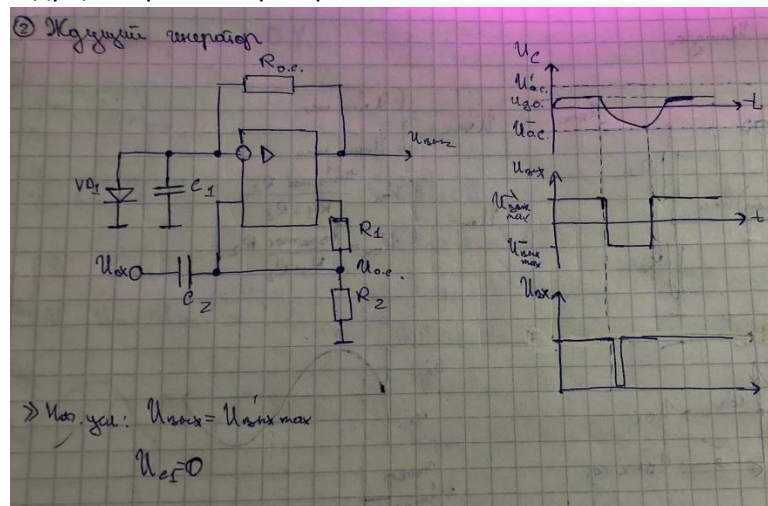 ② Ждущий генератор
Rо.с.
Uвых
VD1
C1
R1
Uо.с.
R2
Uвх
C2
Uc
U⁺о.с.
t
U⁻о.с.
Uвых
U⁺вых max
t
U⁻вых max
Uвх
» Нач. усл.: Uвых = U⁺вых max
Uc1=0